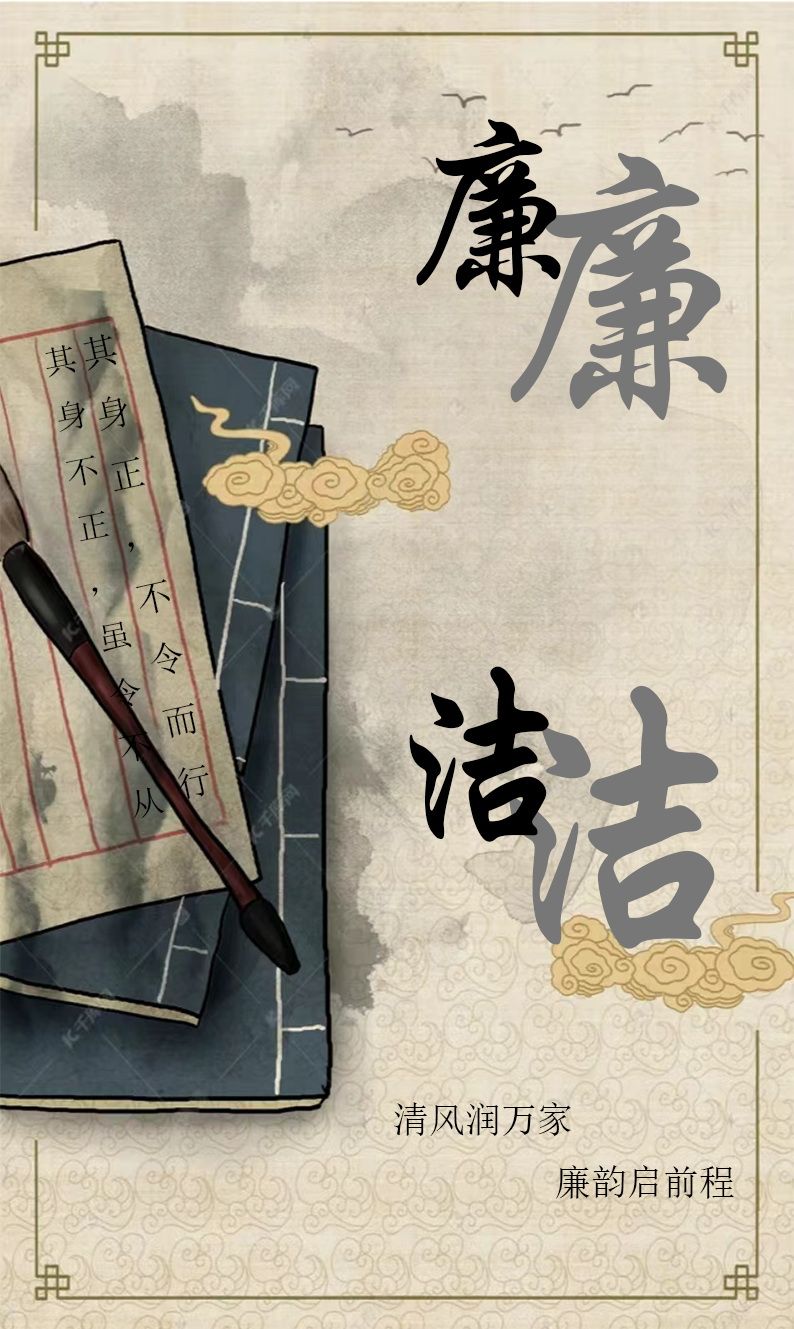 廉
廉
洁
洁
其身正，不令而行
其身不正，虽令不从
清风润万家
廉韵启前程